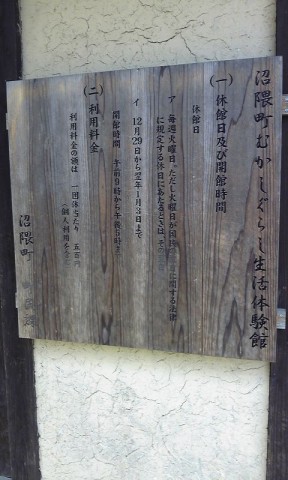 沼隈町むかしぐらし生活体験館
(一)休館日及び開館時間
休館日
ア 毎週火曜日。ただし火曜日が国民の祝日に関する法律
に規定する休日にあたるときは、その
イ 12月29日から翌年1月3日まで
開館時間 午前9時から午後5時まで
(二)利用料金
利用料金の額は 一団体当たり 五百円
(個人利用も
沼隈町